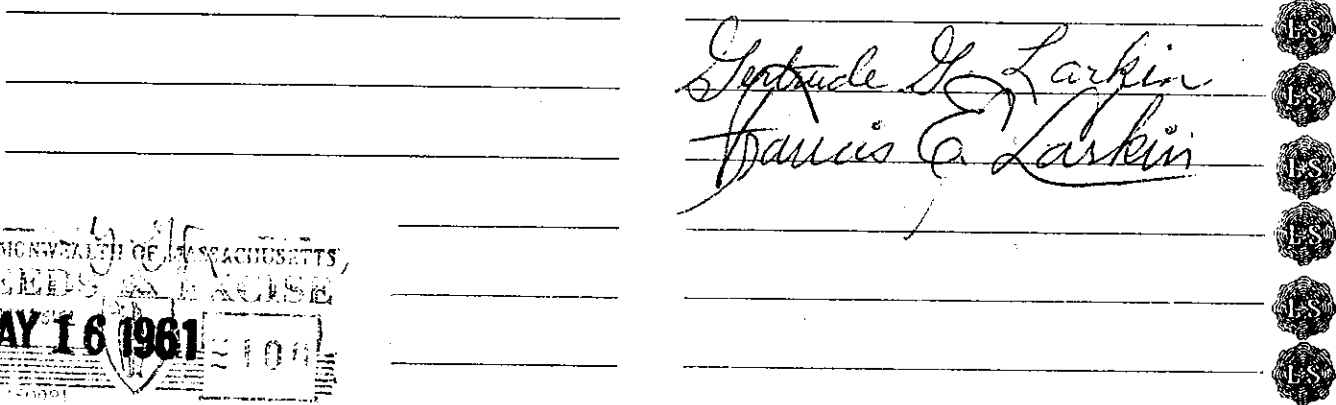 LS
Gertrude G. Larkin
LS
Francis E. Larkin
LS
LS
MONWEALTH OF MASSACHUSETTS
EEDS EXCISE
LS
AY 16 1961
LS